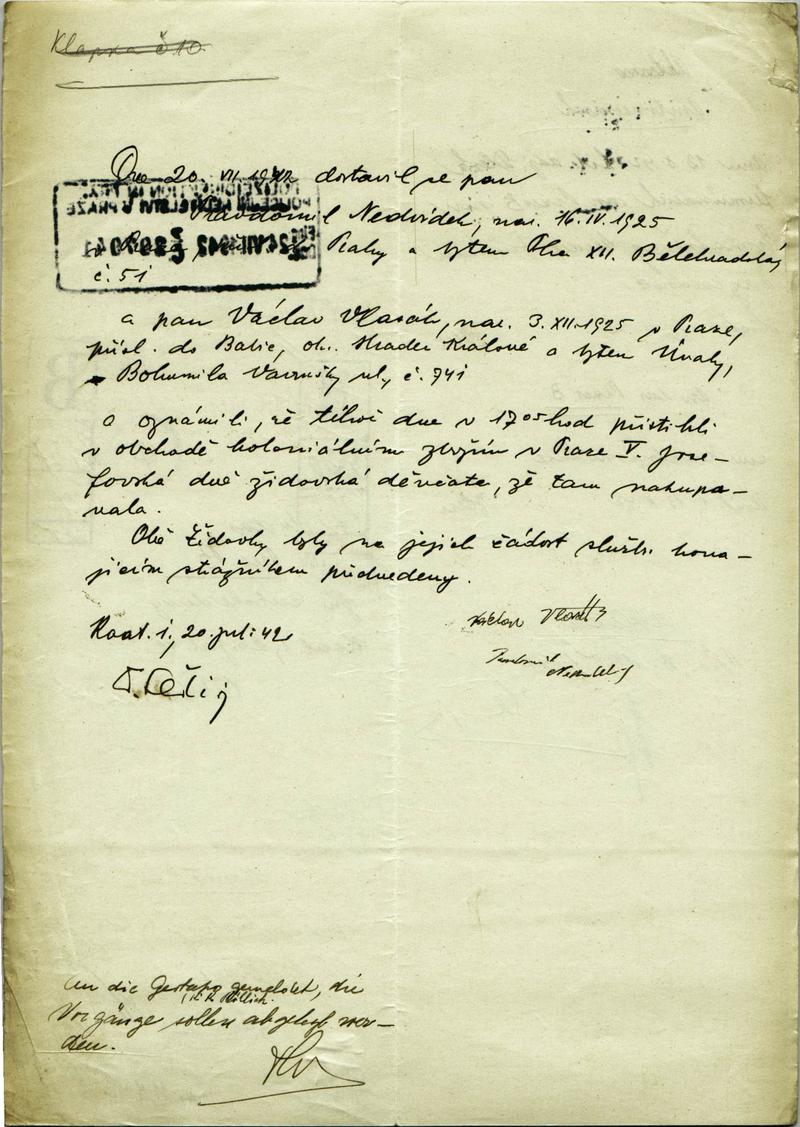 Klapka č 10
Dne 20. VII. 1942 dostavil se pan
Vlavdomil Nedvídek, nar. 16.IV.1925
v Praze, Prahy a bytem Pha XII. Bělehradská
č. 51
a pan Václav Vlasák, nar. 3. XII. 1925 v Praze,
přísl. do Babic, okr. Hradec Králové a bytem Úvaly,
Bohumila Vavrušky ul, č. 741
a oznámili, že téhož dne v 17 05 hod přistihli
v obchodě koloniálním zbožím v Praze V. Jose-
fovská dvě židovská děvčata, že tam nakupo-
vala.
Obě židovky byly na jejich žádost službu kona-
jícím strážníkem předvedeny.
20. juli 42
Václav Vlasák
Nedvídek
An die Gestapo gemeldet, die
Vorgänge sollen abgeholt wer-
den.